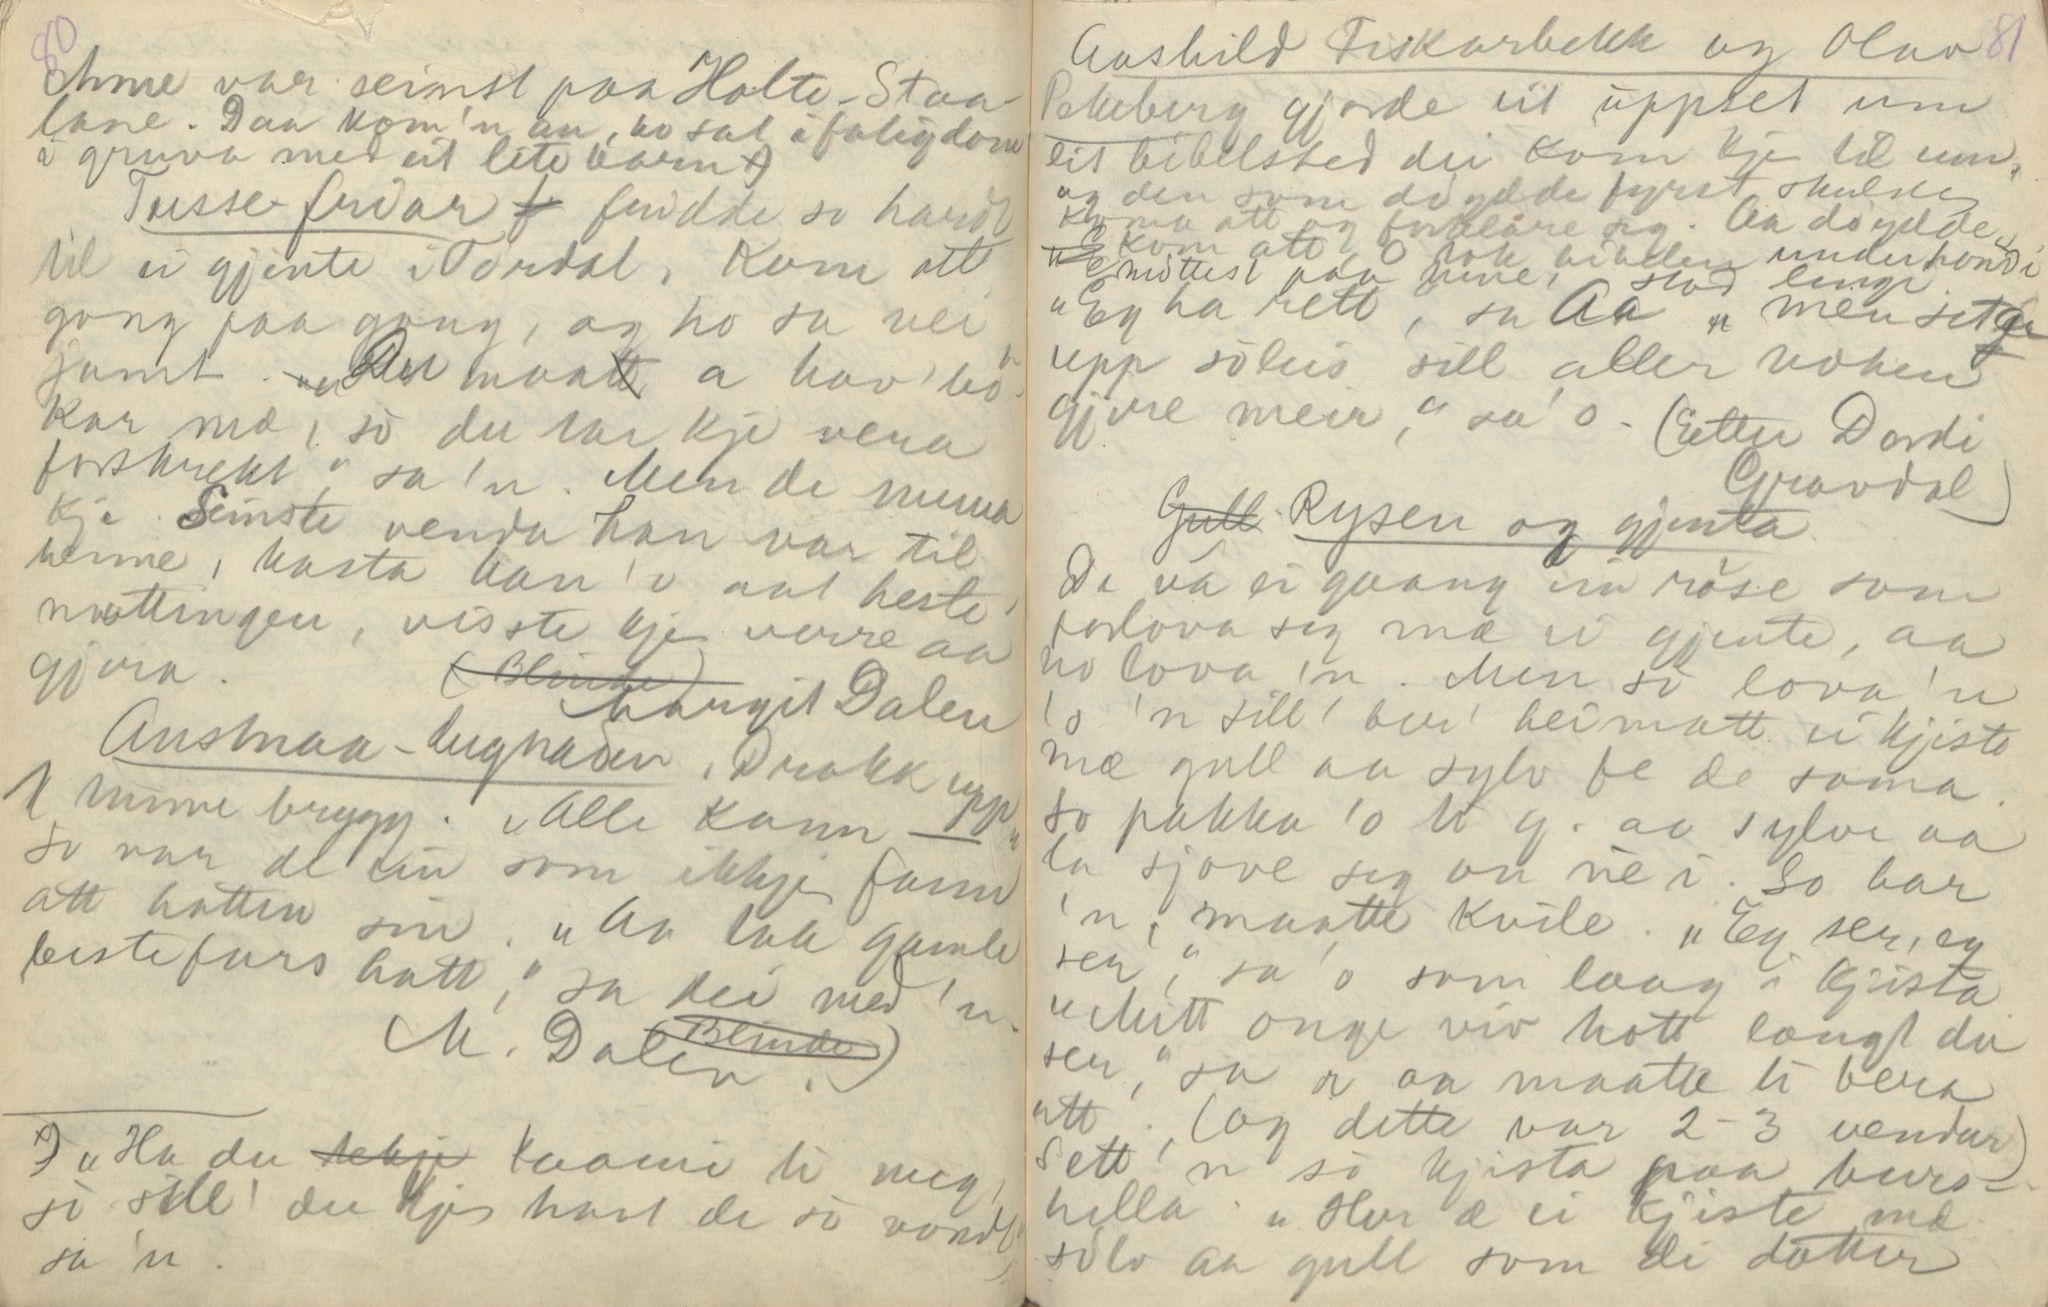 80
Ohme var seinst paa Holte-Staa-
lane. Daa kom'n an, ho sat i fatigdom
i gruva med eit lite barn x)
Tusse-fridar fridde so hardt
til ei gjente i Tørdal. Kom att
gong paa gong, og ho sa nei
jamt. "Du maa a hav' bo-
kar mæ, so du tar kje vera
forskrekt," sa 'n. Men de
kje. Seinste venda han var til
henne, kasta han 'o aat heste'
nattingen, visste kje verre aa
gjera.
(Blinde)
Margit Dalen
Austnaa-lugnaden. Drakk upp
brygg. "Alle kann"
So var de ein som ikkje fann
att hatten sin. "Aa tak gamle
bestefars hatt," sa dei med 'n.
M. Dalen. (Blinde)
x) "Ha du kje kaame ti meg,
so sill' du kje havt de so vondt"
sa 'n.
81
Aashild Fiskarbekk og Olav
Pekeberg gjorde eit uppset um
eit bibelsted dei kom kje til um,
og den som døydde fyrst skulde
koma att og forklare seg. Aa døydde,
kom att, O tok bibelen under hondi
møttest paa, stod lenge.
"Eg ha rett", sa Aa "men set
upp soleis sill aller noken
gjere meir," sa 'o. (Etter Dordi
Gravdal)
Gull Rysen og gjenta
De va ei gaang ein rise som
forlova seg mæ ei gjente, aa
ho lova 'n. Men so lova 'n
'o 'n sill' bere heimatt ei kjiste
mæ gull aa sylv fe de sama.
So pakka 'o ti g. aa sylve aa
la sjøve seg i. So bar
'n, maatte kvile. "Eg ser, eg
ser," sa 'o som laag i kjista
"Mitt onge viv hott langt du
ser," sa 'n aa maatte ti bera
att. (og dette var 2-3 vendur)
Sett 'n so kjista paa burs-
hella. "Her æ ei kjiste mæ
sølv aa gull som di dotter